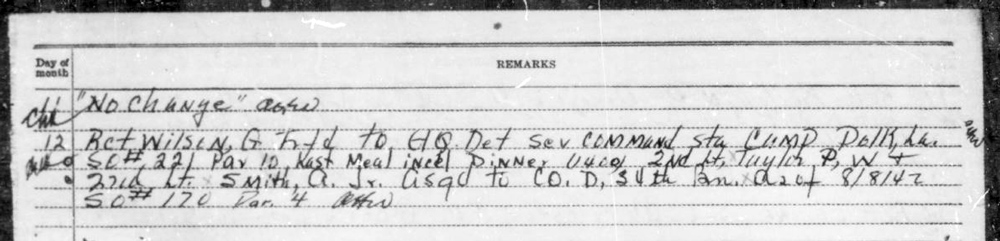 Day of month
REMARKS
11 "No change"
12 Rct Wilson, G trfd to HQ. Det Sev Command, sta Camp Polk, La.
SO# 221 Par 10 Last Meal incl Dinner 2nd Lt. Taylor, P, W +
22nd Lt. Smith, A. Jr. asgd to CO. D, 34th Bn. as of 8/8/42
SO# 170 Par. 4